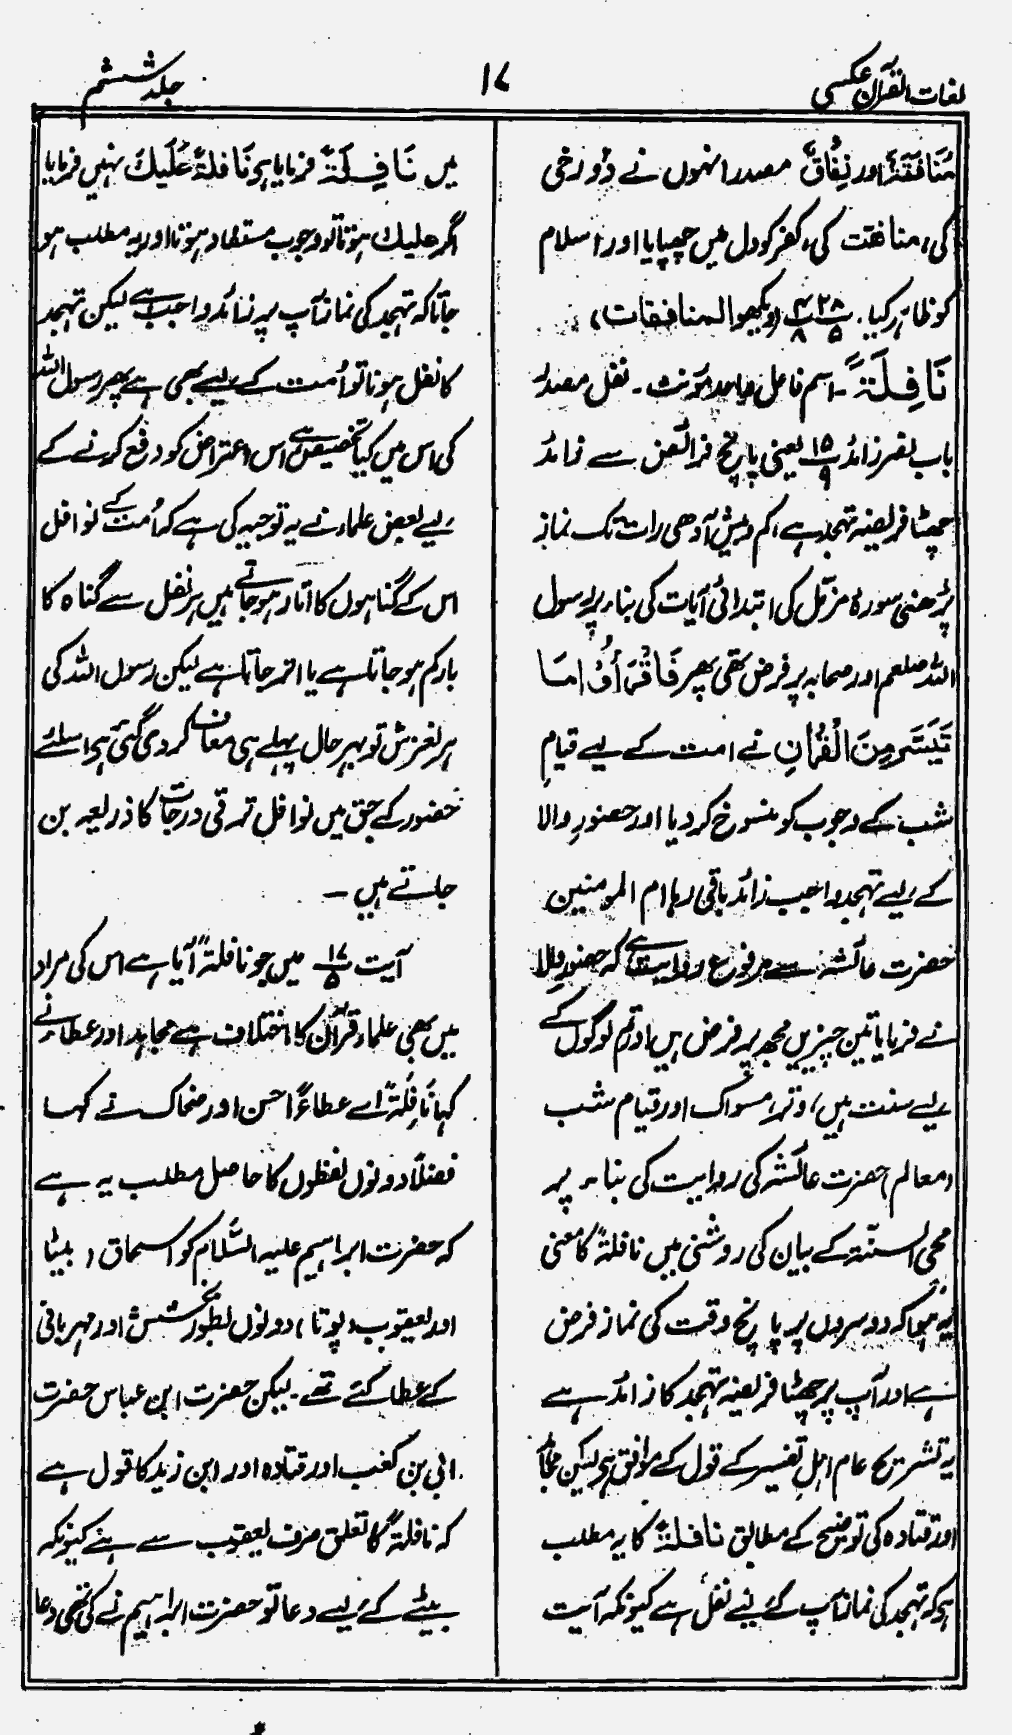 لغات القرآن عکسی
۱۷
جلد ششم
مُنَافَقَۃٌ اور نِفَاقٌ مصدر انہوں نے دُو رخی
کی، منافقت کی، کفر کو دل میں چھپایا اور اسلام
کو ظاہر کیا۔ ۲۸/۵ ۴/۸ (دیکھو المنافقات)
نَافِلَۃً۔ اسم فاعل واحد مؤنث۔ نفل مصدر
باب نصر زائد ۱۵/۹ یعنی پانچ فرائض سے زائد
چھٹا فریضہ تہجد ہے، کم و بیش آدھی رات تک نماز
پڑھنی سورۂ مزمل کی ابتدائی آیات کی بناء پر رسول
اللہ صلعم اور صحابہ پر فرض تھی پھر فَاقْرَأُوْا مَا
تَیَسَّرَ مِنَ الْقُرْاٰنِ نے امت کے لیے قیامِ
شب کے وجوب کو منسوخ کر دیا اور حضورِ والا
کے لیے تہجد واجب زائد باقی رہا ام المومنین
حضرت عائشہ سے مرفوع روایت ہے کہ حضورِ والا
نے فرمایا تین چیزیں مجھ پر فرض ہیں اور تم لوگوں کے
لیے سنت ہیں، وتر، مسواک اور قیام شب
(معالم) حضرت عائشہ کی روایت کی بناء پر
محی السنّۃ کے بیان کی روشنی میں نافلۃً کا معنی
یہ ہوا کہ دوسروں پر پانچ وقت کی نماز فرض
ہے اور آپ پر چھٹا فریضہ تہجد کا زائد ہے
یہ تشریح عام اہلِ تفسیر کے قول کے موافق ہے لیکن مجاہد
اور قتادہ کی توضیح کے مطابق نافلۃً کا یہ مطلب
ہے کہ تہجد کی نماز آپ کے لئے نفل ہے کیونکہ آیت
میں نَافِلَۃً فرمایا ہے نَافلۃً عَلَیْكَ نہیں فرمایا
اگر علیك ہوتا تو وجوب مستفاد ہوتا اور یہ مطلب ہو
جاتا کہ تہجد کی نماز آپ پر زائد واجب ہے لیکن تہجد
کا نفل ہونا تو اُمت کے لیے بھی ہے پھر رسول اللہ
کی اس میں کیا تخصیص ہے اس اعتراض کو دفع کرنے کے
لیے بعض علماء نے یہ توجیہ کی ہے کہ اُمت کے نوافل
اس کے گناہوں کا اتار ہو جاتے ہیں ہر نفل سے گناہ کا
بار کم ہو جاتا ہے یا اتر جاتا ہے لیکن رسول اللہ کی
ہر لغزش تو بہرحال پہلے ہی معاف کر دی گئی ہے اسلئے
حضور کے حق میں نوافل ترقی درجات کا ذریعہ بن
جاتے ہیں۔
آیت ۱۷/۵ میں جو نافلۃً آیا ہے اس کی مراد
میں بھی علماء قرآن کا اختلاف ہے مجاہد اور عطاء نے
کہا نَافِلَۃً اے عطاءً احسن اور ضحاک نے کہا
فضلاً دونوں لفظوں کا حاصل مطلب یہ ہے
کہ حضرت ابراہیم علیہ السَّلام کو اسحاق (بیٹا)
اور یعقوب (پوتا) دونوں بطور بخشش اور مہربانی
کے عطا کئے تھے۔ لیکن حضرت ابن عباس حضرت
ابی بن کعب اور قتادہ اور ابن زید کا قول ہے
کہ نافلۃً کا تعلق صرف یعقوب سے ہے کیونکہ
بیٹے کے لیے دعا تو حضرت ابراہیم نے کی تھی دعا